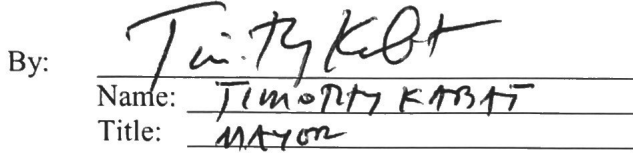 By: Timothy Kabat
Name: TIMOTHY KABAT
Title: MAYOR